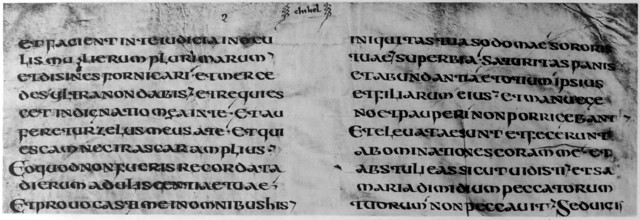 ET FACIENT IN TE IUDICIA IN OCU
LIS MULIERUM PLURIMARUM
ET DISINES FORNICARI· ET MERCE
DES ULTRA NON DABIS· ET REQUIES
CET INDIGNATIO MEA IN TE· ET AU
FERETUR ZELUS MEUS A TE· ET QUI
ESCAM NEC IRASCAR AMPLIUS·
EO QUOD NON FUERIS RECORDATA
DIERUM ADULISCENTIAE TUAE·
ET PROUOCASTI ME IN OMNIBUS HIS
INIQUITAS TUA SODOMAE SORORIS
TUAE SUPERBIA· SATURITAS PANIS
ET ABUNDANTIA ET OTIUM IPSIUS
ET FILIARUM EIUS· ET MANU EGE
NO ET PAUPERI NON PORRIGEBANT
ET ELEUATAE SUNT ET FECERUNT
ABOMINATIONES CORAM ME· ET
ABSTULI EAS SICUT UIDISTI· ET SA
MARIA DIMIDIUM PECCATORUM
TUORUM NON PECCAUIT· SED UICIS